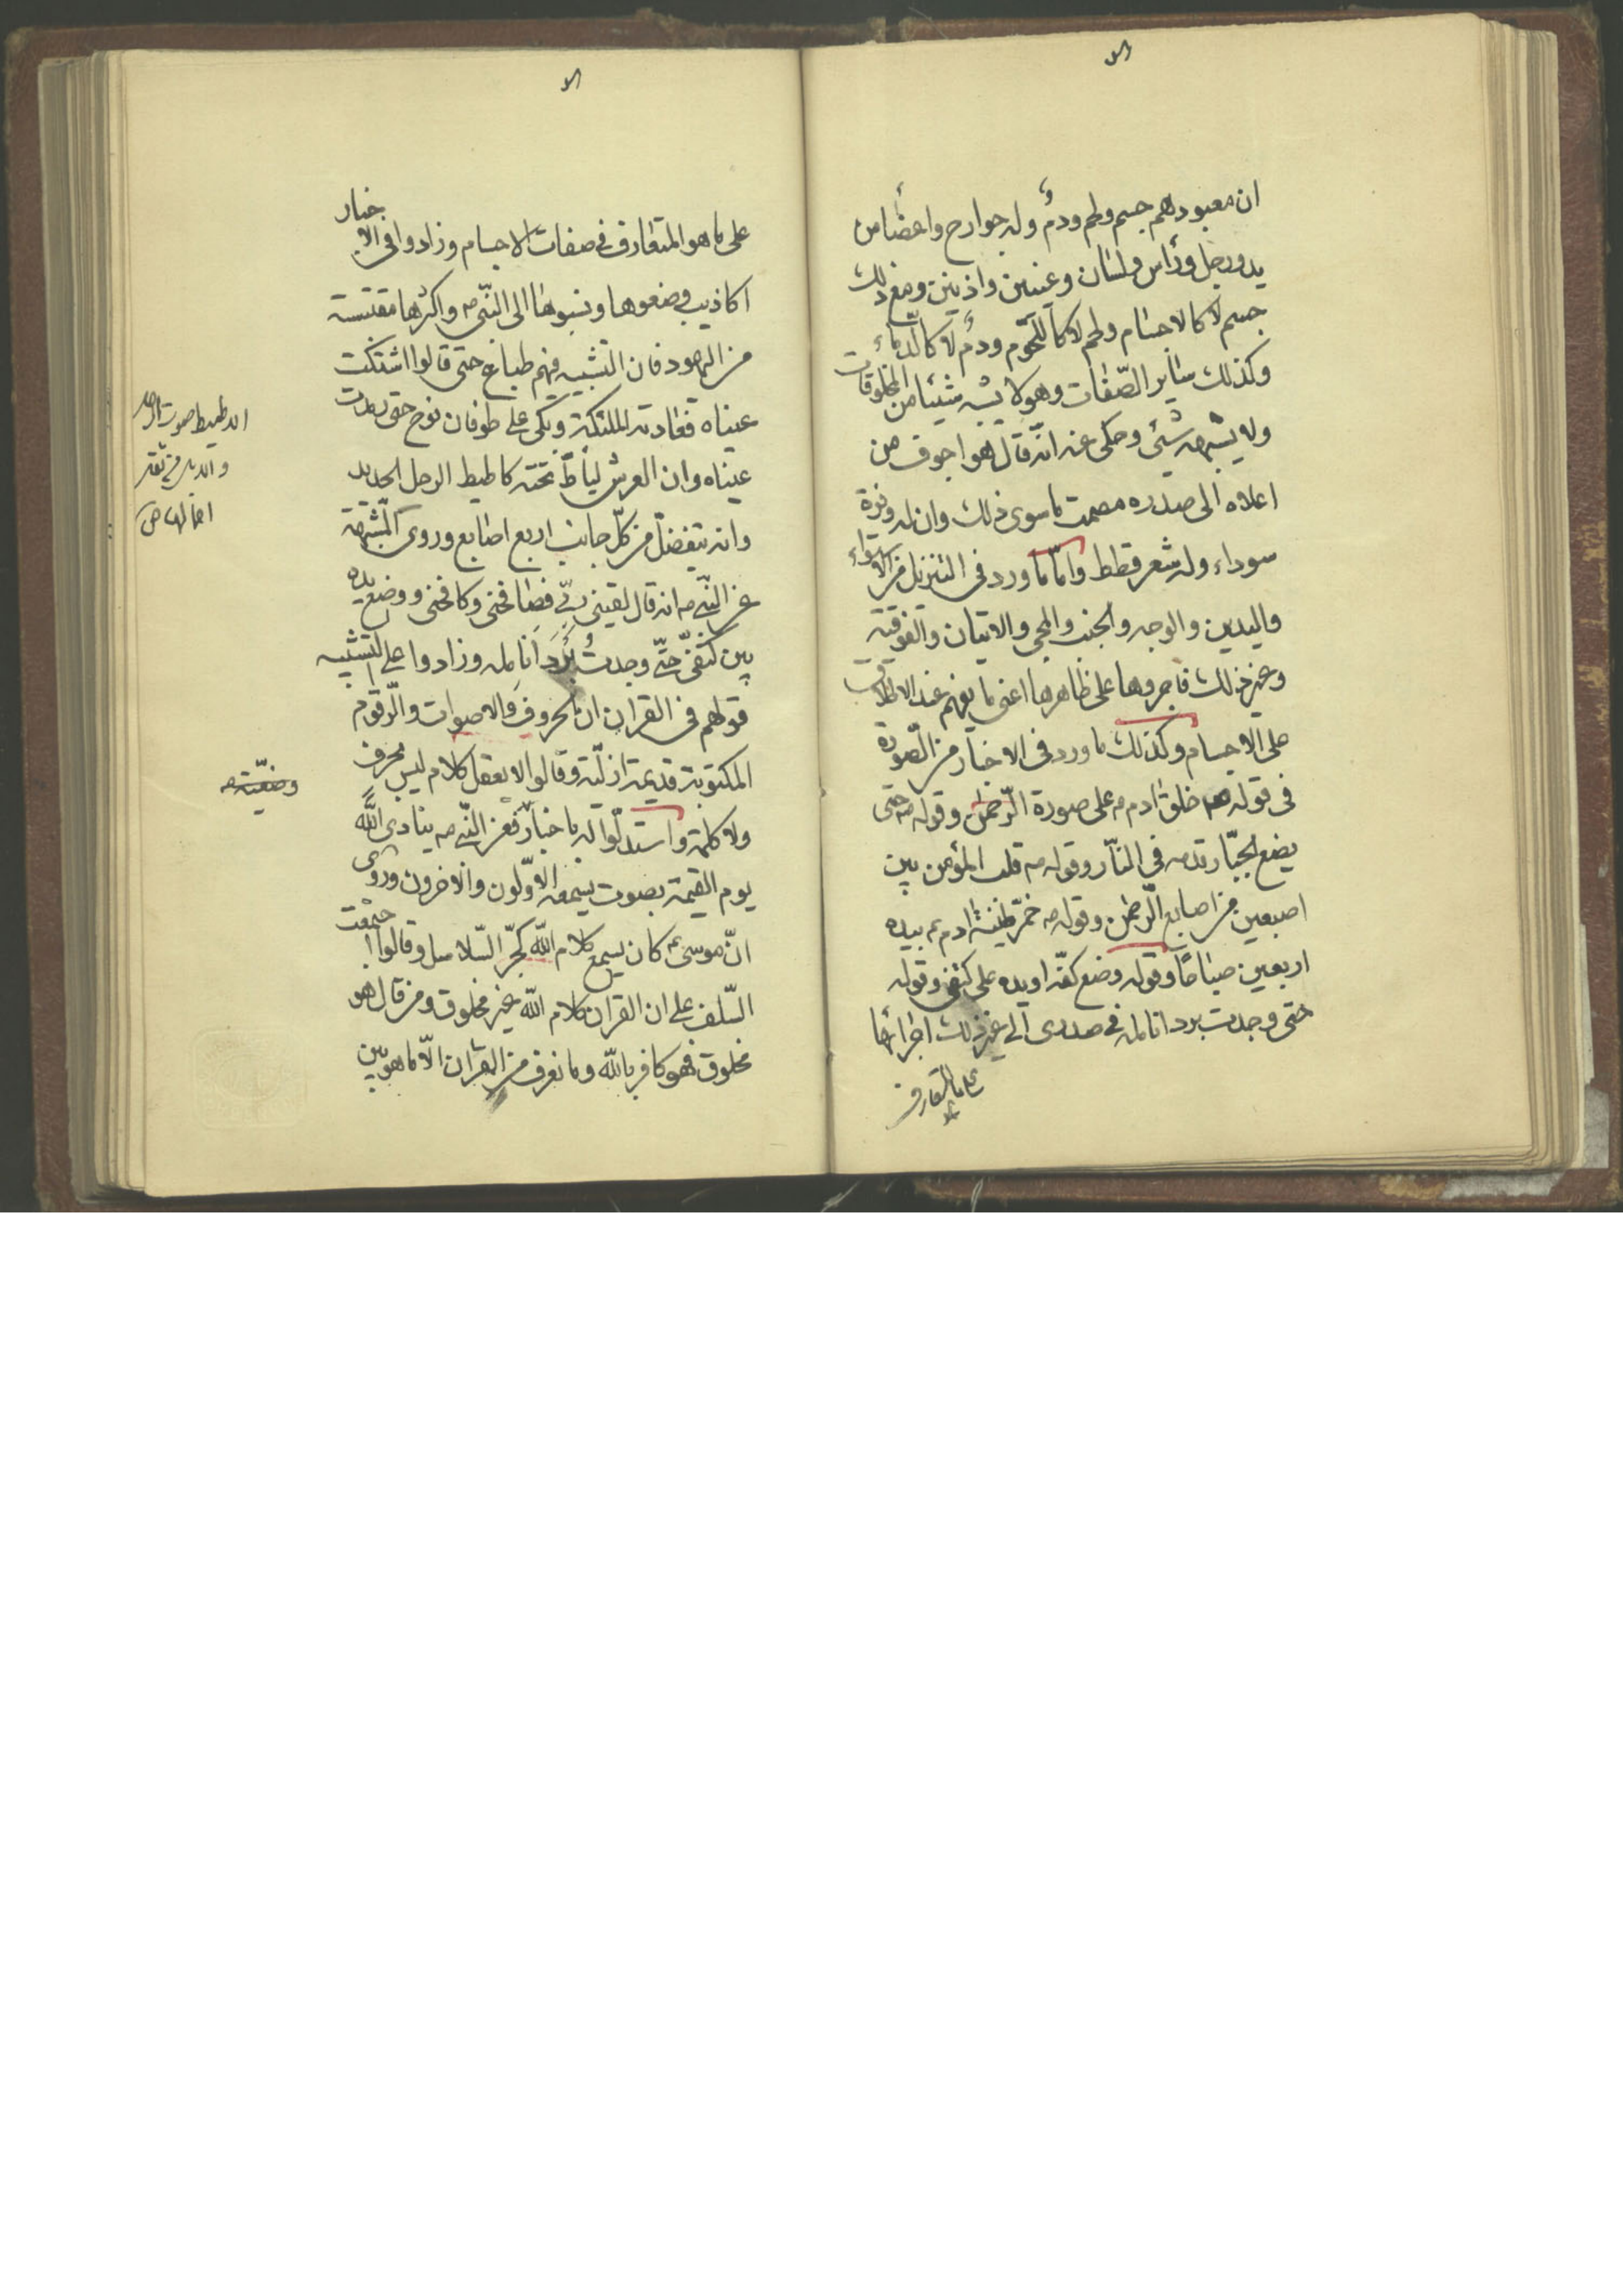 ان معبودهم جسم ولحم ودم وله جوارح واعضأ من
يد ورجل ورأس ولسان وعينين واذنين ومع ذلك
جسم لا كالاجسام ولحم لا كاللحوم ودم لا كالدماء
وكذلك ساير الصفات وهو لا يشبه شيئا من المخلوقات
ولا يشبهه شئ وحكى عنه انه قال هو اجوف من
اعلاه الى صدره مصمت ما سوى ذلك وان له وفرة
سوداء وله شعر قطط واما ما ورد في التنزيل من الاستواء
واليدين والوجه والجنب والمجئ والاتيان والفوقية
وغير ذلك فاجروها على ظاهرها اعنى ما يفهم عند الاطلاق
على الاجسام وكذلك ما ورد فى الاخبار من الصورة
فى قوله خلق ادم على صورة الرّحمن وقوله ص حتى
يضع الجبّار قدمه في النّار وقوله ص قلب المؤمن بين
اصبعين من اصابع الرّحمن وقوله ص خمّر طينة ادم بيده
اربعين صباحًا وقوله وضع كفّه او يده على كتفى وقوله
حتى وجدت برد انامله فى صدرى الى غير ذلك اجراءها
على ما التعارف
على ما هو المتعارف فى صفات الاجسام وزادوا فى الاخبار
اكاذيب وضعوها ونسبوها الى النّبى ص واكثرها مقتبسة
من اليهود فان التشبيه فيهم طباع حتى قالوا اشتكت
عيناه فعادته الملئكة وبكى على طوفان نوح حتى رمدت
عيناه وان العرش ليأطّ تحته كاطيط الرحل الجديد
وانه يتفضل من كلّ جانب اربع اصابع وروى المشبّهة
عن النّبى ص انه قال لقينى ربّى فصافحنى وكافحنى ووضع يده
بين كتفىّ حتّى وجدت بَرَد انامله وزادوا على التشبيه
قولهم فى القران ان الحروف والاصوات والرّقوم
المكتوبة قديمة ازليّة وقالوا لا يعقل كلام ليس بحرف
ولا كلمة واستدلّوا له باخبار فعن النّبى ص ينادى اللّه
يوم القيمة بصوت يسمعه الاوّلون والاخرون وروى
انّ موسى ع كان يسمع كلام اللّه كجرّ السّلاسل وقالوا اجتمعت
السّلف على ان القران كلام اللّه غير مخلوق ومن قال هو
مخلوق فهو كافر باللّه وما نعرف من القران الّا ما هو بين